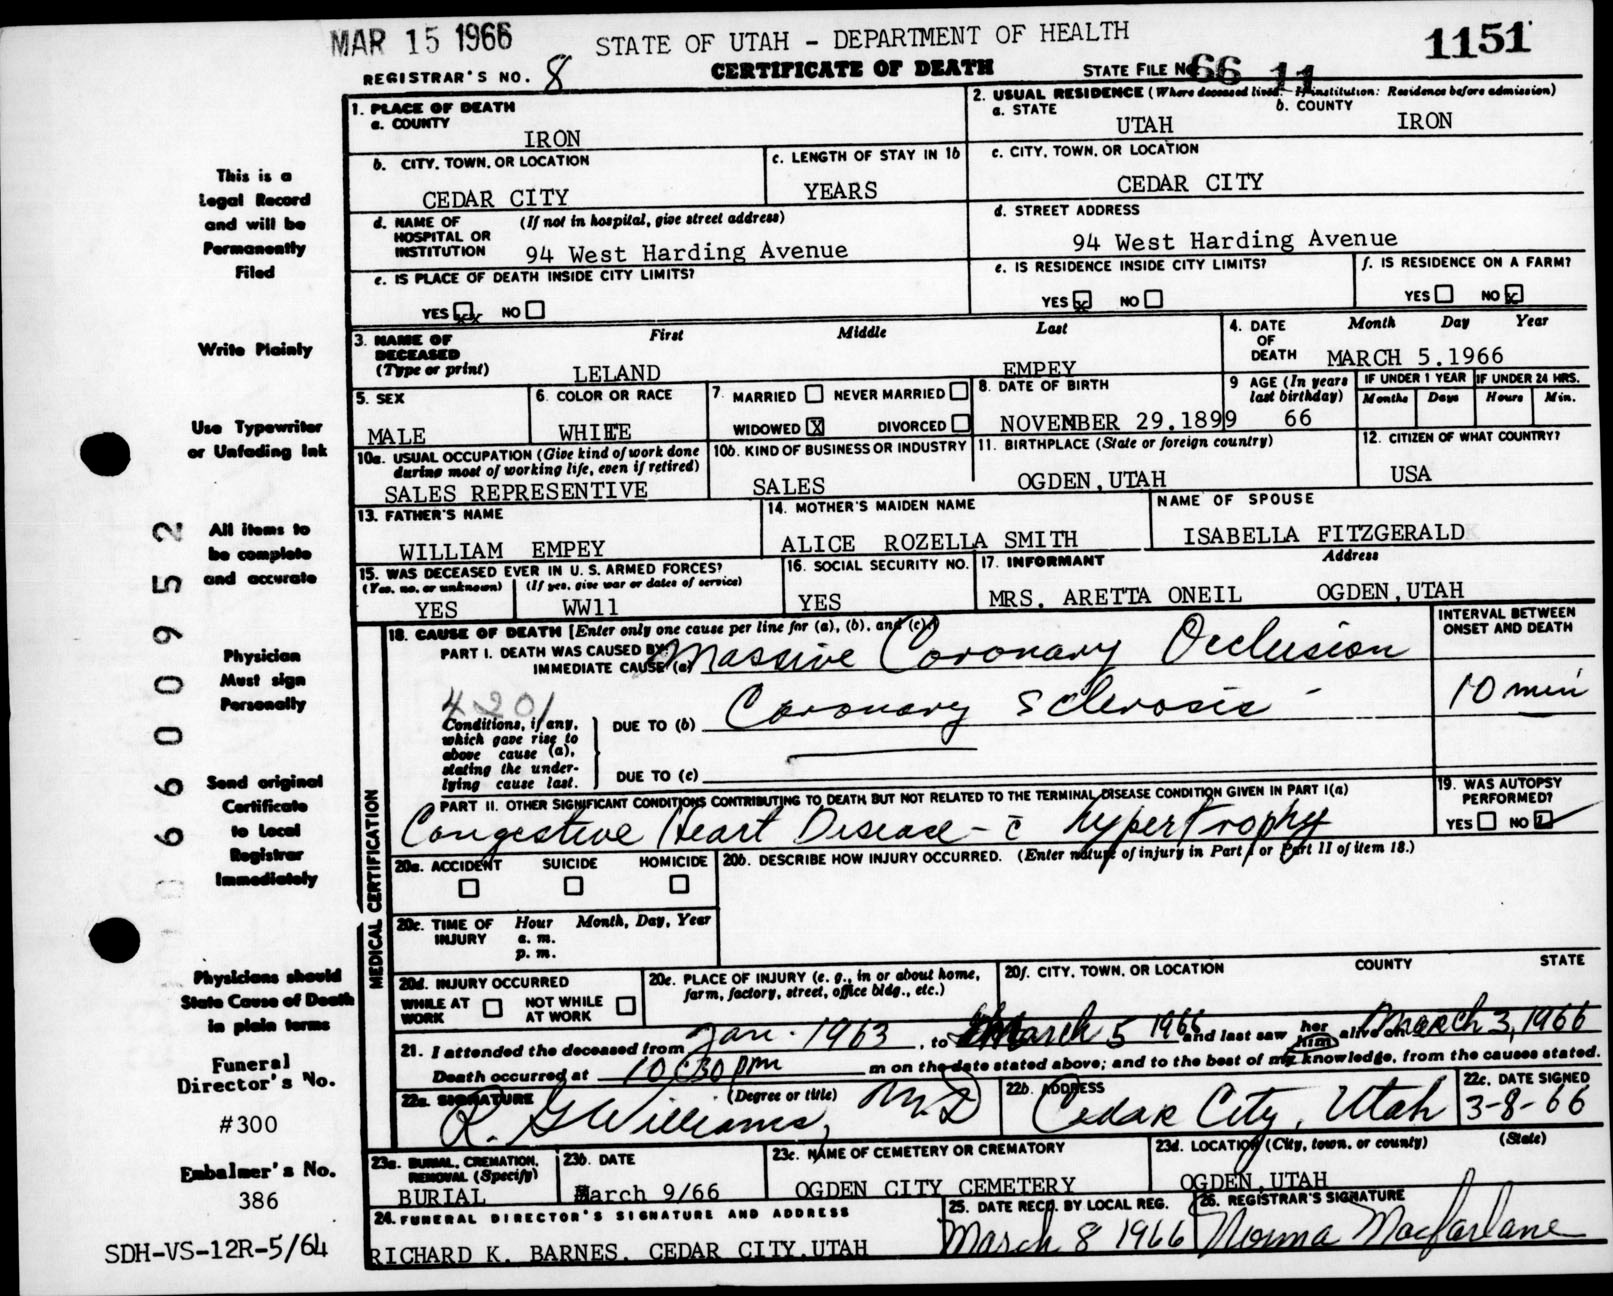 MAR 15 1966
STATE OF UTAH - DEPARTMENT OF HEALTH
1151
REGISTRAR'S NO. 8
CERTIFICATE OF DEATH
STATE FILE NO. 66 11
1. PLACE OF DEATH
a. COUNTY
IRON
2. USUAL RESIDENCE (Where deceased lived. If institution: Residence before admission)
a. STATE
b. COUNTY
UTAH
IRON
b. CITY, TOWN, OR LOCATION
CEDAR CITY
c. LENGTH OF STAY IN 1b
YEARS
c. CITY, TOWN, OR LOCATION
CEDAR CITY
d. NAME OF HOSPITAL OR INSTITUTION
(If not in hospital, give street address)
94 West Harding Avenue
d. STREET ADDRESS
94 West Harding Avenue
e. IS PLACE OF DEATH INSIDE CITY LIMITS?
YES xx NO
e. IS RESIDENCE INSIDE CITY LIMITS?
YES x NO
f. IS RESIDENCE ON A FARM?
YES NO x
3. NAME OF DECEASED (Type or print)
First Middle Last
LELAND EMPEY
4. DATE OF DEATH
Month Day Year
MARCH 5.1966
5. SEX
MALE
6. COLOR OR RACE
WHITE
7. MARRIED NEVER MARRIED
WIDOWED X DIVORCED
8. DATE OF BIRTH
NOVEMBER 29.1899
9 AGE (In years last birthday)
66
IF UNDER 1 YEAR
Months Days
IF UNDER 24 HRS.
Hours Min.
10a. USUAL OCCUPATION (Give kind of work done during most of working life, even if retired)
SALES REPRESENTIVE
10b. KIND OF BUSINESS OR INDUSTRY
SALES
11. BIRTHPLACE (State or foreign country)
OGDEN, UTAH
12. CITIZEN OF WHAT COUNTRY?
USA
13. FATHER'S NAME
WILLIAM EMPEY
14. MOTHER'S MAIDEN NAME
ALICE ROZELLA SMITH
NAME OF SPOUSE
ISABELLA FITZGERALD
15. WAS DECEASED EVER IN U. S. ARMED FORCES?
(Yes, no, or unknown) (If yes, give war or dates of service)
YES WW11
16. SOCIAL SECURITY NO.
YES
17. INFORMANT Address
MRS. ARETTA ONEIL OGDEN, UTAH
MEDICAL CERTIFICATION
18. CAUSE OF DEATH [Enter only one cause per line for (a), (b), and (c).]
INTERVAL BETWEEN ONSET AND DEATH
PART I. DEATH WAS CAUSED BY:
IMMEDIATE CAUSE (a) Massive Coronary Occlusion
10 min
4201
Conditions, if any, which gave rise to above cause (a), stating the underlying cause last.
DUE TO (b) Coronary Sclerosis -
DUE TO (c)
PART II. OTHER SIGNIFICANT CONDITIONS CONTRIBUTING TO DEATH BUT NOT RELATED TO THE TERMINAL DISEASE CONDITION GIVEN IN PART I(a)
Congestive Heart Disease - c̄ hypertrophy
19. WAS AUTOPSY PERFORMED?
YES NO ✓
20a. ACCIDENT SUICIDE HOMICIDE
20b. DESCRIBE HOW INJURY OCCURRED. (Enter nature of injury in Part I or Part II of item 18.)
20c. TIME OF INJURY
Hour Month, Day, Year
a. m.
p. m.
20d. INJURY OCCURRED
WHILE AT WORK NOT WHILE AT WORK
20e. PLACE OF INJURY (e. g., in or about home, farm, factory, street, office bldg., etc.)
20f. CITY, TOWN, OR LOCATION COUNTY STATE
21. I attended the deceased from Jan. 1963, to March 5 1966 and last saw her him alive on March 3, 1966
Death occurred at 10:30 pm m on the date stated above; and to the best of my knowledge, from the causes stated.
22a. SIGNATURE (Degree or title)
R. G Williams, MD
22b. ADDRESS
Cedar City, Utah
22c. DATE SIGNED
3-8-66
23a. BURIAL, CREMATION, REMOVAL (Specify)
BURIAL
23b. DATE
March 9/66
23c. NAME OF CEMETERY OR CREMATORY
OGDEN CITY CEMETERY
23d. LOCATION (City, town, or county) (State)
OGDEN, UTAH
24. FUNERAL DIRECTOR'S SIGNATURE AND ADDRESS
RICHARD K. BARNES, CEDAR CITY, UTAH
25. DATE RECD. BY LOCAL REG.
March 8 1966
26. REGISTRAR'S SIGNATURE
Norma Macfarlane
This is a
Legal Record
and will be
Permanently
Filed
Write Plainly
Use Typewriter
or Unfading Ink
All items to
be complete
and accurate
Physician
Must sign
Personally
Send original
Certificate
to Local
Registrar
Immediately
Physicians should
State Cause of Death
in plain terms
Funeral
Director's No.
#300
Embalmer's No.
386
SDH-VS-12R-5/64
06600952